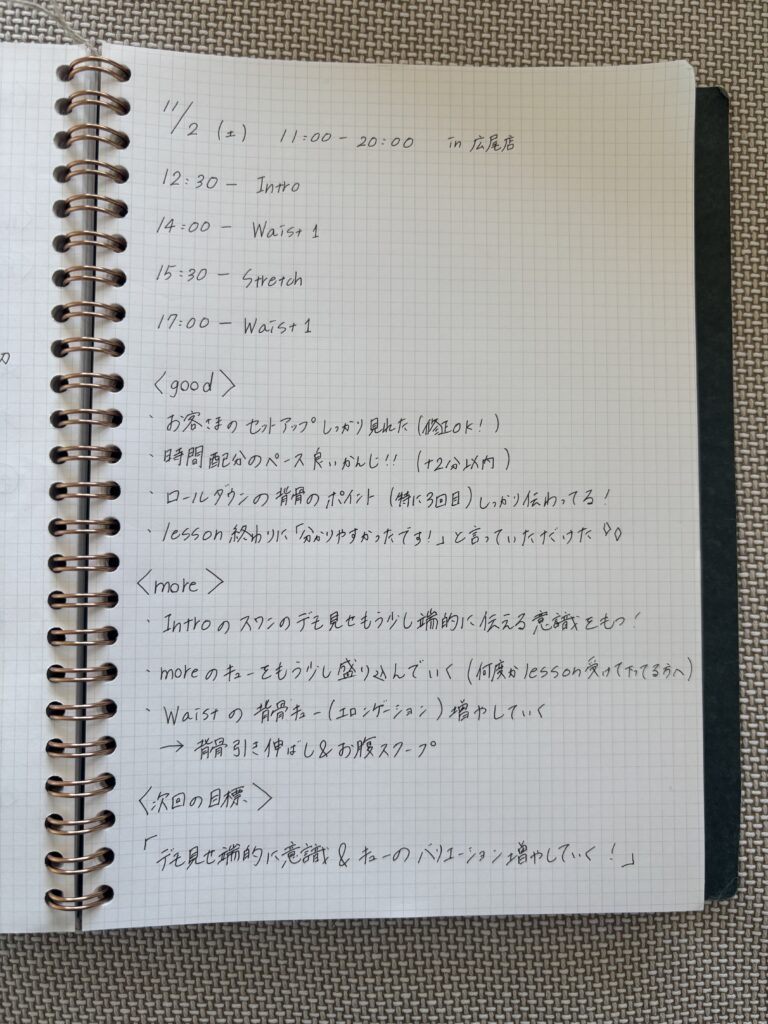 11/2 (土) 11:00 - 20:00 in 広尾店
12:30 - Intro
14:00 - Waist 1
15:30 - Stretch
17:00 - Waist 1
〈good〉
・お客さまのセットアップしっかり見れた(修正OK!)
・時間配分のペース良いかんじ!! (+2分以内)
・ロールダウンの背骨のポイント(特に3回目)しっかり伝わってる!
・lesson終わりに「分かりやすかったです!」と言っていただけた◊◊
〈more〉
・Introのスワンのデモ見せもう少し端的に伝える意識をもつ!
・moreのキューをもう少し盛り込んでいく(何度かlesson受けて下さってる方へ)
・Waistの背骨キュー(エロンゲーション)増やしていく
→ 背骨引き伸ばし&お腹スクープ
〈次回の目標〉
「デモ見せ端的に意識&キューのバリエーション増やしていく!」
カ